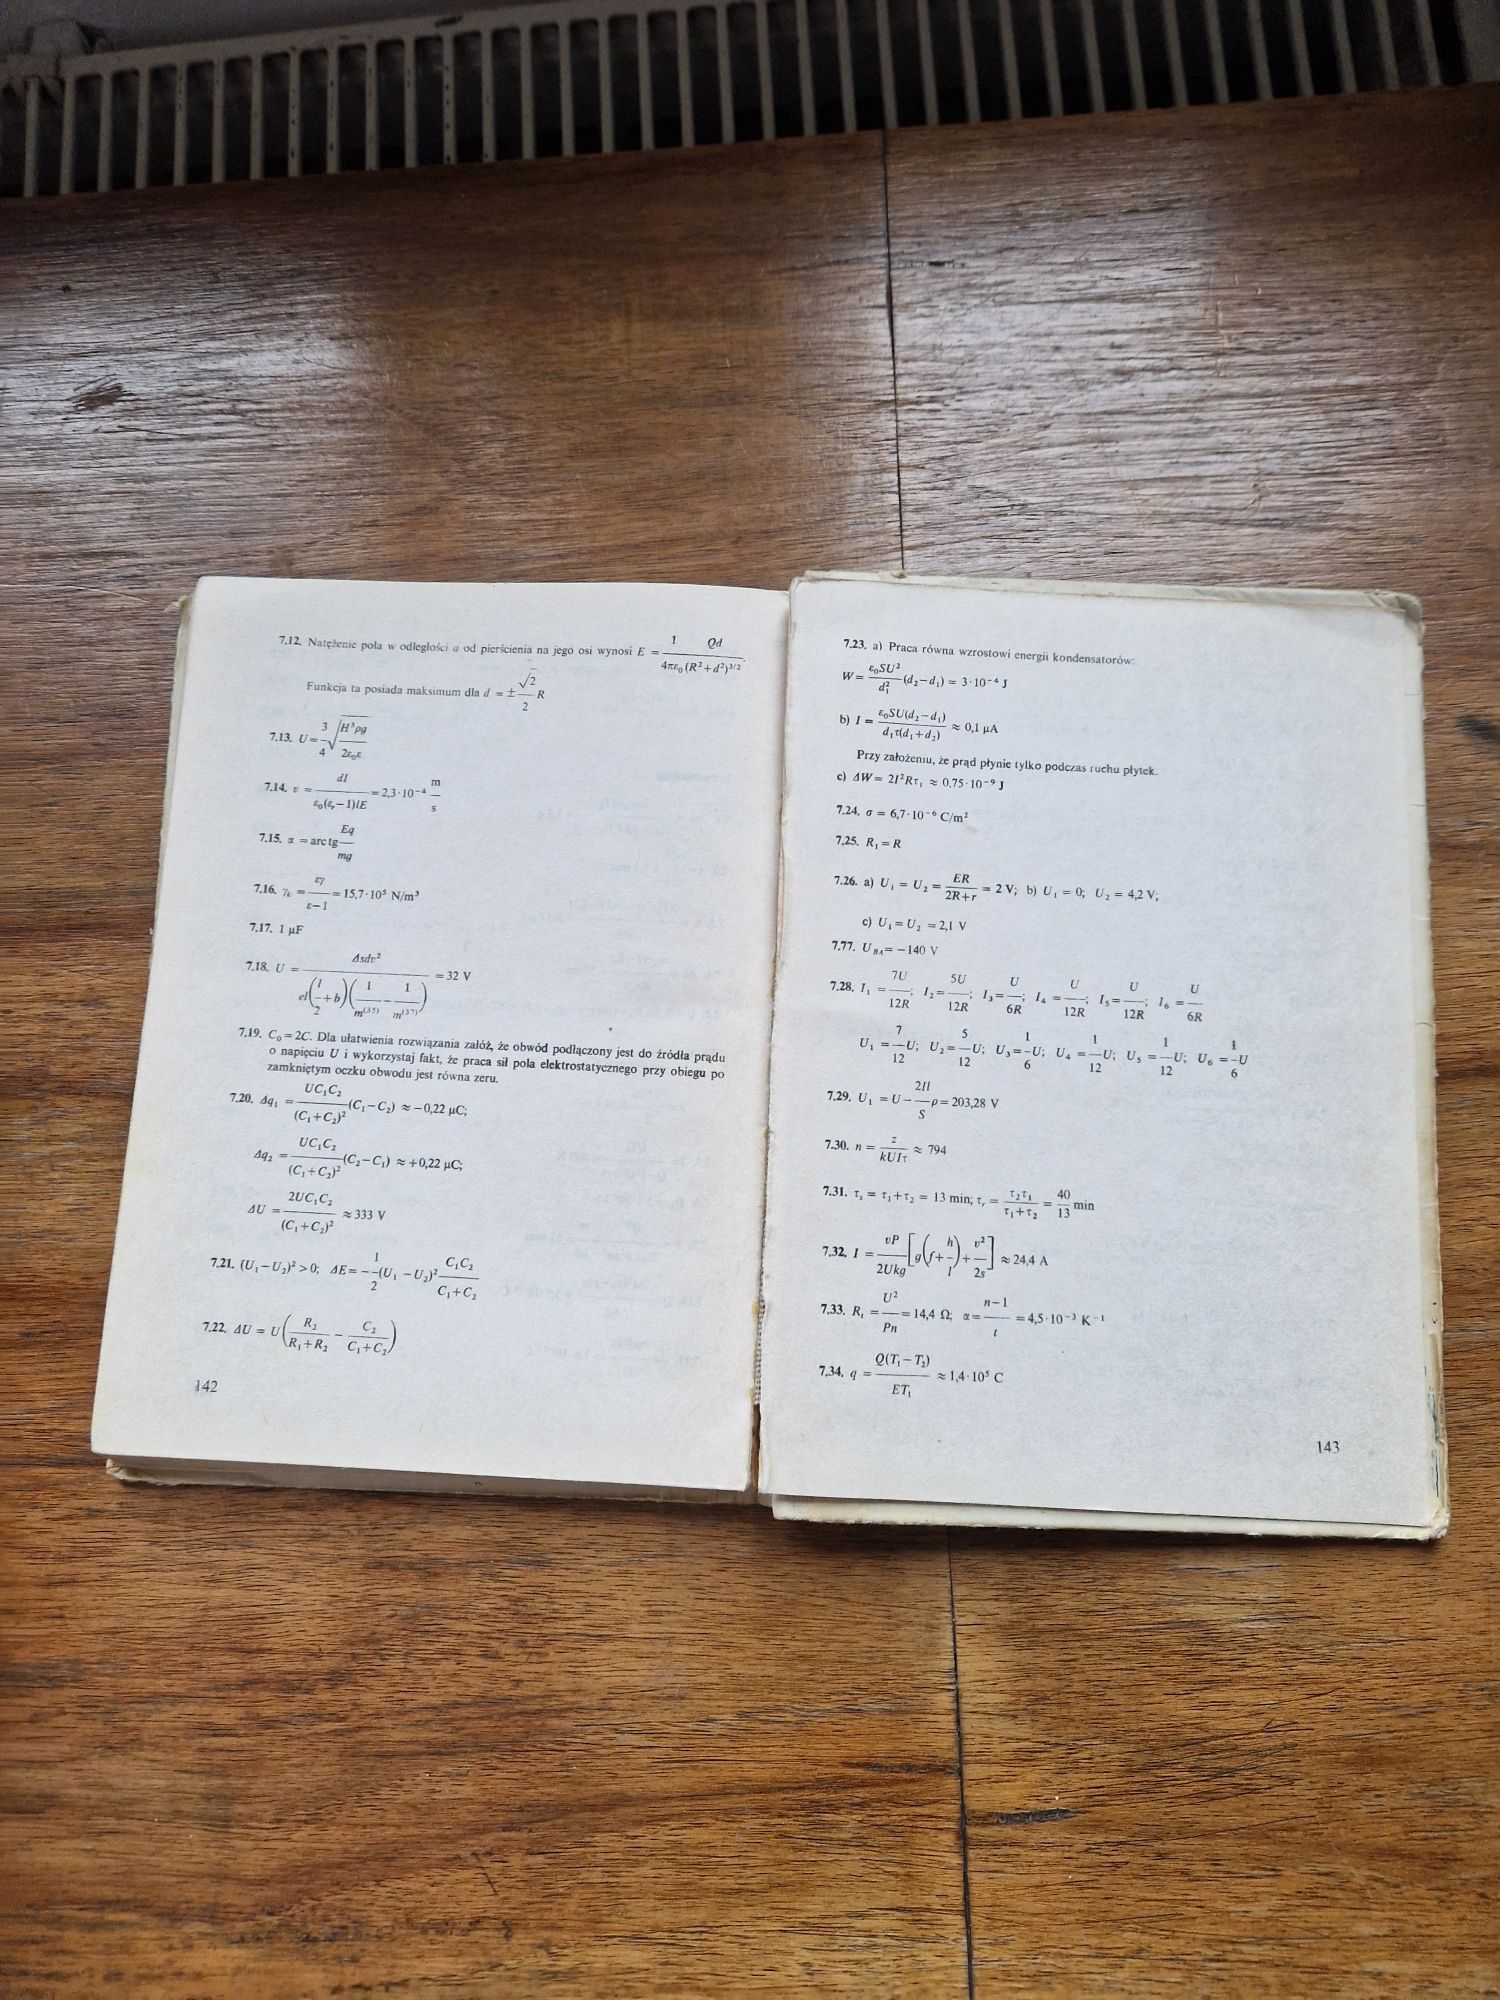 7.12. Natężenie pola w odległości a od pierścienia na jego osi wynosi E = 1/(4πε₀) Qd/(R²+d²)^3/2.
Funkcja ta posiada maksimum dla d = ± √2/2 R
7.13. U = 3/4 √(H³ρg/2ε₀ε)
7.14. v = dI/(ε₀(εᵣ−1)lE) = 2,3·10⁻⁴ m/s
7.15. α = arc tg Eq/mg
7.16. γₖ = εγ/(ε−1) = 15,7·10⁵ N/m³
7.17. 1 μF
7.18. U = Δsdv²/(el(l/2+b)(1/m⁽³⁵⁾ − 1/m⁽³⁷⁾)) = 32 V
7.19. C₀ = 2C. Dla ułatwienia rozwiązania załóż, że obwód podłączony jest do źródła prądu
o napięciu U i wykorzystaj fakt, że praca sił pola elektrostatycznego przy obiegu po
zamkniętym oczku obwodu jest równa zeru.
7.20. Δq₁ = UC₁C₂/(C₁+C₂)² (C₁−C₂) ≈ −0,22 μC;
Δq₂ = UC₁C₂/(C₁+C₂)² (C₂−C₁) ≈ +0,22 μC;
ΔU = 2UC₁C₂/(C₁+C₂)² ≈ 333 V
7.21. (U₁−U₂)² > 0; ΔE = −1/2 (U₁−U₂)² C₁C₂/(C₁+C₂)
7.22. ΔU = U(R₂/(R₁+R₂) − C₂/(C₁+C₂))
142
7.23. a) Praca równa wzrostowi energii kondensatorów:
W = ε₀SU²/d₁² (d₂−d₁) = 3·10⁻⁴ J
b) I = ε₀SU(d₂−d₁)/(d₁τ(d₁+d₂)) ≈ 0,1 μA
Przy założeniu, że prąd płynie tylko podczas ruchu płytek.
c) ΔW = 2I²Rτ, ≈ 0,75·10⁻⁹ J
7.24. σ = 6,7·10⁻⁶ C/m²
7.25. R₁ = R
7.26. a) U₁ = U₂ = ER/(2R+r) = 2 V; b) U₁ = 0; U₂ = 4,2 V;
c) U₁ = U₂ = 2,1 V
7.77. U_BA = −140 V
7.28. I₁ = 7U/12R; I₂ = 5U/12R; I₃ = U/6R; I₄ = U/12R; I₅ = U/12R; I₆ = U/6R
U₁ = 7/12 U; U₂ = 5/12 U; U₃ = 1/6 U; U₄ = 1/12 U; U₅ = 1/12 U; U₆ = 1/6 U
7.29. U₁ = U − 2Il/S ρ = 203,28 V
7.30. n = z/kUIτ ≈ 794
7.31. τₛ = τ₁+τ₂ = 13 min; τᵣ = τ₂τ₁/(τ₁+τ₂) = 40/13 min
7.32. I = vP/2Ukg [g(f+h/l)+v²/2s] ≈ 24,4 A
7.33. Rₜ = U²/Pn = 14,4 Ω; α = (n−1)/t = 4,5·10⁻³ K⁻¹
7.34. q = Q(T₁−T₂)/ET₁ ≈ 1,4·10⁵ C
143